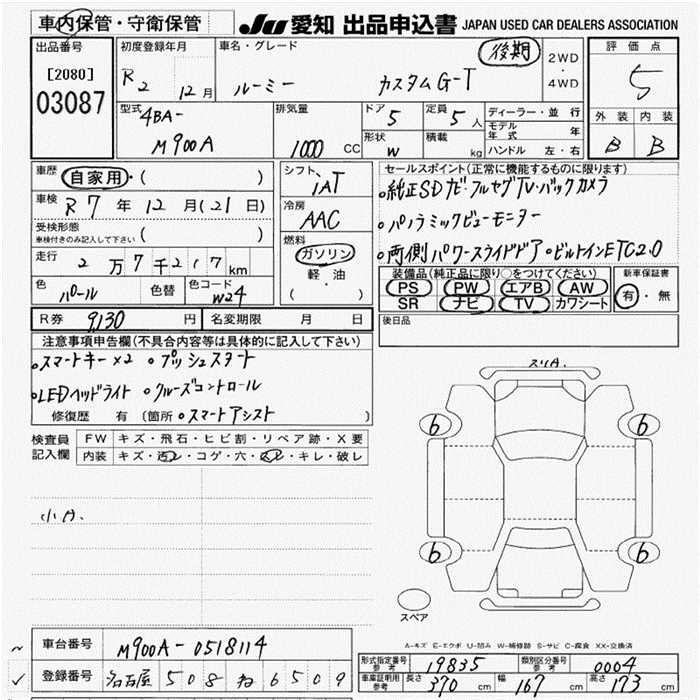 車内保管・守衛保管 JU 愛知 出品申込書 JAPAN USED CAR DEALERS ASSOCIATION
出品番号 初度登録年月 車名・グレード 後期 2WD・4WD 評価点
[2080] R2 12月 ルーミー カスタムG-T 5
03087
型式 4BA- M900A 排気量 1000 CC ドア 5 定員 5人 ディーラー・並行 外装 内装
形状 W 積載 kg モデル年式 年 B B
ハンドル 左・右
車歴 自家用・( ) シフト IAT セールスポイント(正常に機能するものに限ります)
車検 R7年 12月(21日) 冷房 AAC 。純正SDナビ・フルセグTV・バックカメラ
受検形態 車検付きのみ記入して下さい ( ) 。パノラミックビューモニター
走行 2万7千217km 燃料 ガソリン 軽・油 ( ) 。両側パワースライドドア 。ビルトインETC2.0
色 パール 色替 色コード W24 装備品(純正品に限り○をつけてください) 新車保証書
PS PW エアB AW 有・無
SR ナビ TV カワシート
R券 9,130円 名変期限 月 日 後日品
注意事項申告欄(不具合内容等は具体的に記入して下さい)
。スマートキー×2 。プッシュスタート
。LEDヘッドライト 。クルーズコントロール
修復歴 有(箇所 。スマートアシスト
検査員記入欄 FW キズ・飛石・ヒビ割・リペア跡・X要
内装 キズ・汚レ・コゲ・穴・スレ・キレ・破レ
スリA.
6 6
6 6
小A.
スペア
A-キズ E-エクボ U-凹み W-補修跡 S-サビ C-腐食 XX-交換済
〜 車台番号 M900A-0518114
✓ 登録番号 名古屋 508 ね 6509
形式指定番号 参考 19835 類別区分番号 参考 0004
車庫証明用 参考 長さ 370 cm 幅 167 cm 高さ 173 cm